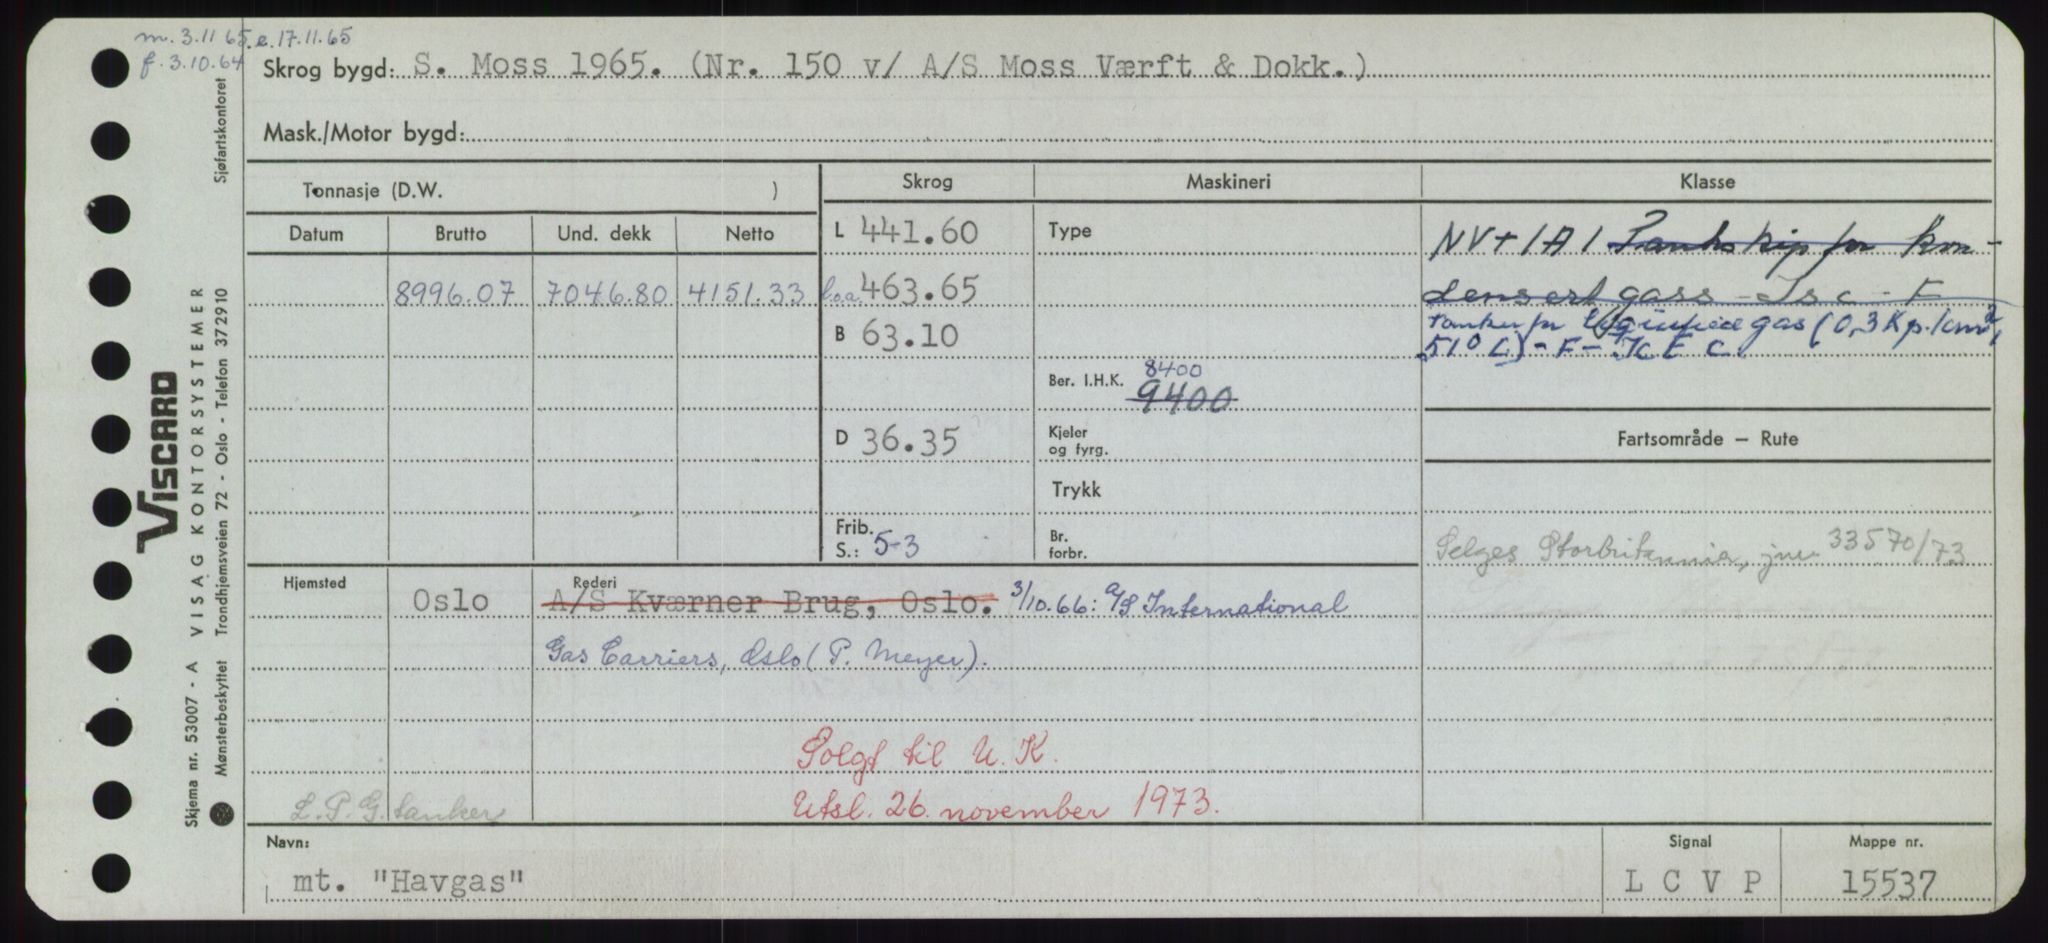 m. 3.11 65. e. 17.11.65
f. 3.10.64
Skrog bygd: S. Moss 1965. (Nr. 150 v/ A/S Moss Værft & Dokk.)
Mask./Motor bygd:
Tonnasje (D.W. )
Skrog
Maskineri
Klasse
Datum
Brutto
Und. dekk
Netto
L 441.60
Type
NV + 1A1 Tankskip for kon-
8996.07 7046.80 4151.33
l.o.a. 463.65
densert gass - Is c - F
B 63.10
Tanker for liquified gas (0,3 Kp./cm²,
51° C) - F - Ic E C
Ber. I.H.K. 8400
9400
D 36.35
Kjeler
og fyrg.
Fartsområde – Rute
Trykk
Frib.
S.: 5-3
Br.
forbr.
Selges Storbritannia, jnr. 33570/73
Hjemsted
Oslo
Rederi
A/S Kværner Brug, Oslo. 3/10.66: A/S International
Gas Carriers, Oslo (P. Meyer).
Solgt til U.K.
L.P.G. tanker
Utsl. 26. november 1973.
Navn:
mt. "Havgas"
Signal
L C V P
Mappe nr.
15537
Sjøfartskontoret
VISCARD
Skjema nr. 53007 - A VISAG KONTORSYSTEMER
Mønsterbeskyttet Trondhjemsveien 72 - Oslo - Telefon 372910